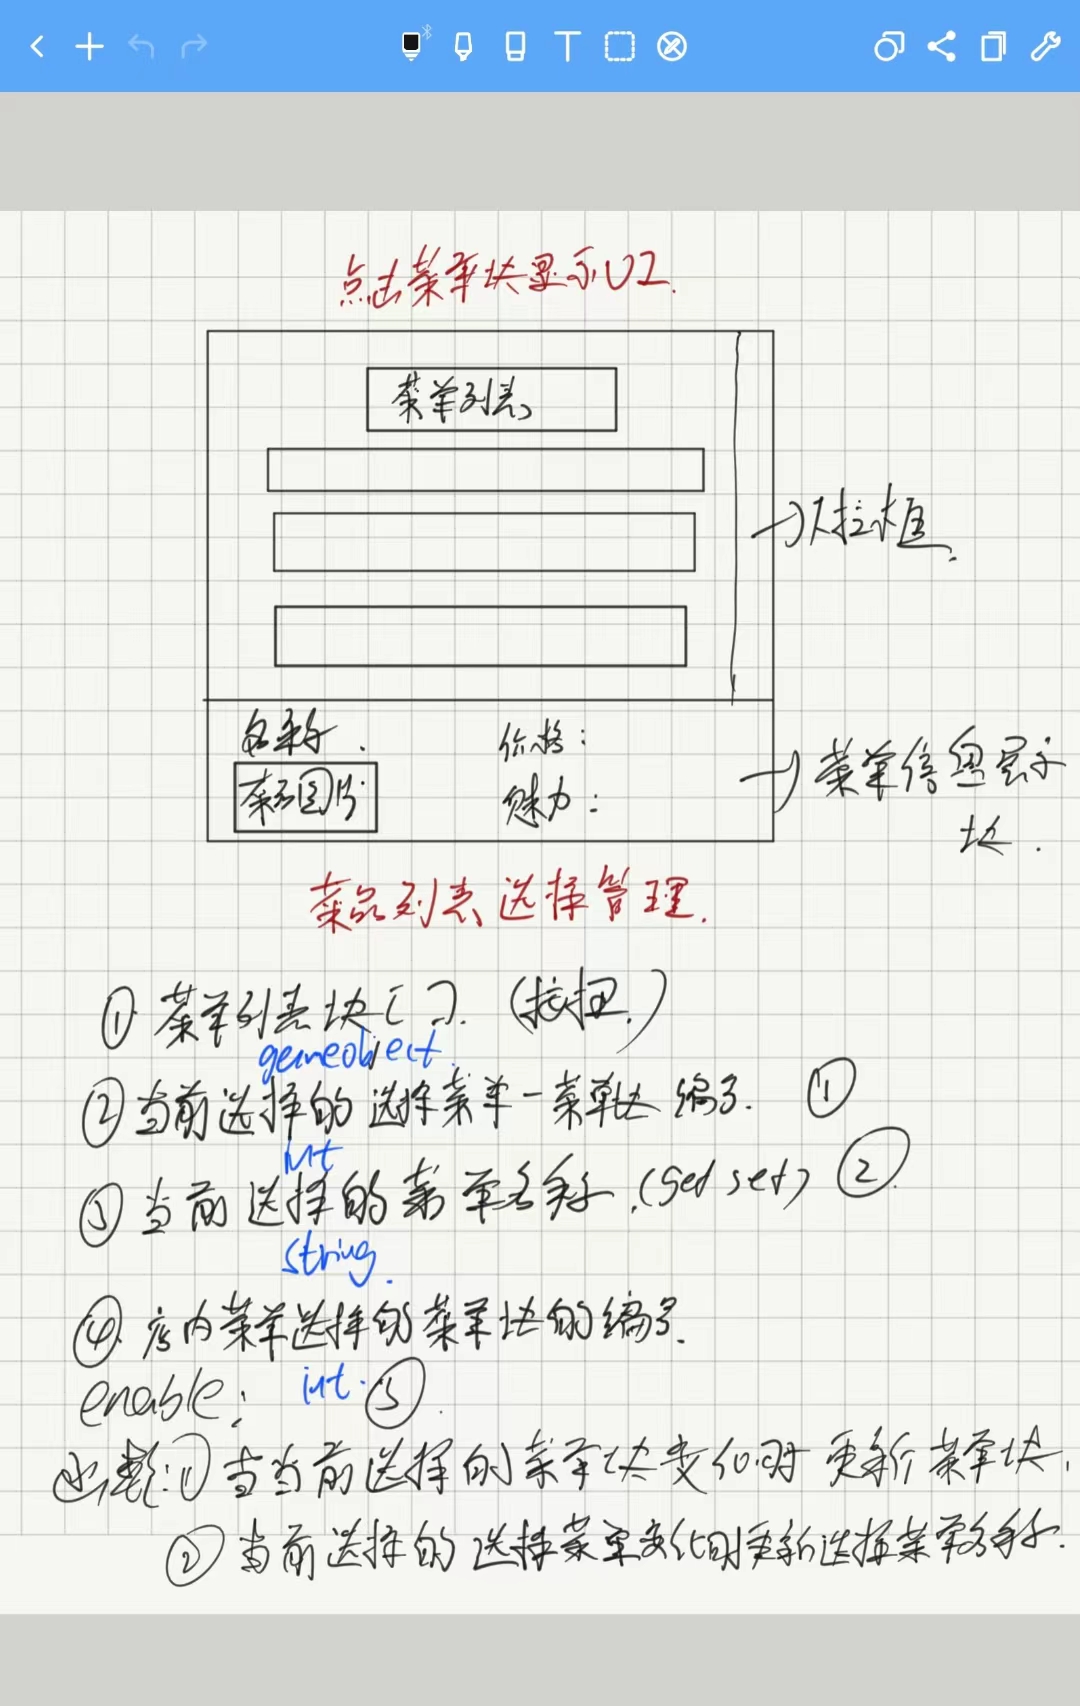 点击菜单块显示UI.
菜单列表
→下拉框.
名称.
价格:
菜品图片
魅力:
→菜单信息展示
块.
菜品列表选择管理.
① 菜单列表块[]. (按扭.)
gameobject.
② 当前选择的选择菜单-菜单块编号. ①
int
③ 当前选择的菜单名称.(get set) ②
string.
④ 店内菜单选择的菜单块的编号.
enable: int. ③
函数:① 当当前选择的菜单块变化时更新菜单块.
② 当前选择的选择菜单变化时更新选择菜单名称.